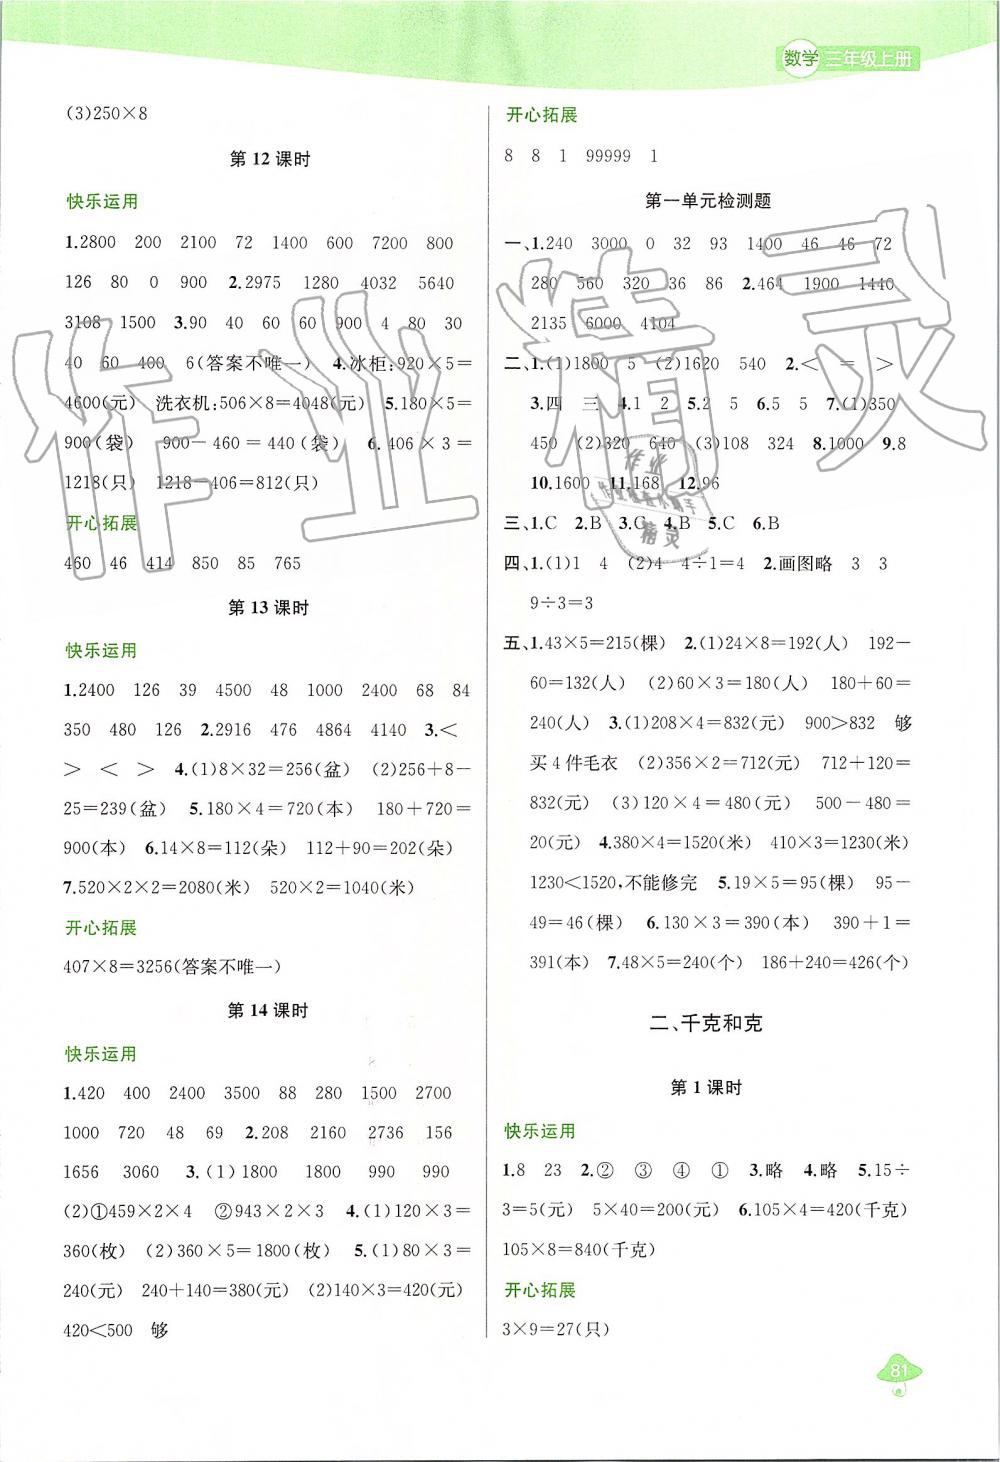 数学 三年级上册
(3)250×8
第 12 课时
快乐运用
1.2800 200 2100 72 1400 600 7200 800
126 80 0 900 2.2975 1280 4032 5640
3108 1500 3.90 40 60 60 900 4 80 30
40 60 400 6(答案不唯一) 4.冰柜:920×5=
4600(元) 洗衣机:506×8=4048(元) 5.180×5=
900(袋) 900-460=440(袋) 6.406×3=
1218(只) 1218-406=812(只)
开心拓展
460 46 414 850 85 765
第 13 课时
快乐运用
1.2400 126 39 4500 48 1000 2400 68 84
350 480 126 2.2916 476 4864 4140 3.<
> < > 4.(1)8×32=256(盆) (2)256+8-
25=239(盆) 5.180×4=720(本) 180+720=
900(本) 6.14×8=112(朵) 112+90=202(朵)
7.520×2×2=2080(米) 520×2=1040(米)
开心拓展
407×8=3256(答案不唯一)
第 14 课时
快乐运用
1.420 400 2400 3500 88 280 1500 2700
1000 720 48 69 2.208 2160 2736 156
1656 3060 3.(1)1800 1800 990 990
(2)①459×2×4 ②943×2×3 4.(1)120×3=
360(枚) (2)360×5=1800(枚) 5.(1)80×3=
240(元) 240+140=380(元) (2)140×3=420(元)
420<500 够
开心拓展
8 8 1 99999 1
第一单元检测题
一、1.240 3000 0 32 93 1400 46 46 72
280 560 320 36 86 2.464 1900 1440
2135 6000 4104
二、1.(1)1800 5 (2)1620 540 2.< = >
3.四 三 4.1 2 5.2 5 6.5 5 7.(1)350
450 (2)320 640 (3)108 324 8.1000 9.8
10.1600 11.168 12.96
三、1.C 2.B 3.C 4.B 5.C 6.B
四、1.(1)1 4 (2)4 4÷1=4 2.画图略 3 3
9÷3=3
五、1.43×5=215(棵) 2.(1)24×8=192(人) 192-
60=132(人) (2)60×3=180(人) 180+60=
240(人) 3.(1)208×4=832(元) 900>832 够
买 4 件毛衣 (2)356×2=712(元) 712+120=
832(元) (3)120×4=480(元) 500-480=
20(元) 4.380×4=1520(米) 410×3=1230(米)
1230<1520,不能修完 5.19×5=95(棵) 95-
49=46(棵) 6.130×3=390(本) 390+1=
391(本) 7.48×5=240(个) 186+240=426(个)
二、千克和克
第 1 课时
快乐运用
1.8 23 2.② ③ ④ ① 3.略 4.略 5.15÷
3=5(元) 5×40=200(元) 6.105×4=420(千克)
105×8=840(千克)
开心拓展
3×9=27(只)
81
作业精灵
作业
精灵